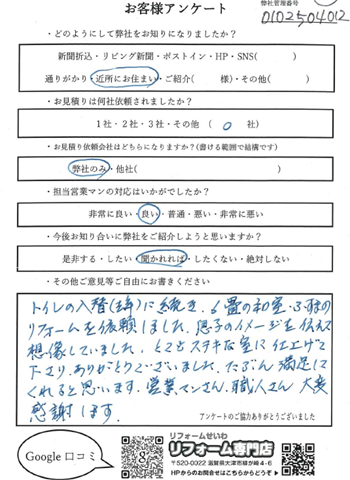 お客様アンケート
弊社管理番号
0102504012
・どのようにして弊社をお知りになりましたか？
新聞折込・リビング新聞・ポストイン・HP・SNS( )
通りがかり・近所にお住まい・ご紹介( 様)・その他( )
・お見積りは何社依頼されましたか？
1社・2社・3社・その他 ( 0 社)
・お見積り依頼会社はどちらになりますか？(書ける範囲で結構です)
弊社のみ・他社( )
・担当営業マンの対応はいかがでしたか？
非常に良い・良い・普通・悪い・非常に悪い
・今後お知り合いに弊社をご紹介しようと思いますか？
是非する・したい・聞かれれば・したくない・絶対しない
・その他ご意見等ご自由にお書きください
トイレの入替に続き、6畳の和室
リフォームを依頼しました。息子のイメージを伝えて
想像していました。とてもステキな室に仕上げて
下さり、ありがとうございました。たぶん満足して
くれると思います。営業マンさん、職人さん 大変
感謝します。
アンケートのご協力ありがとうございました
Google 口コミ
リフォームせいわ
リフォーム専門店
〒520-0022 滋賀県大津市柳が崎4-6
HPからのお問合せはこちらからどうぞ